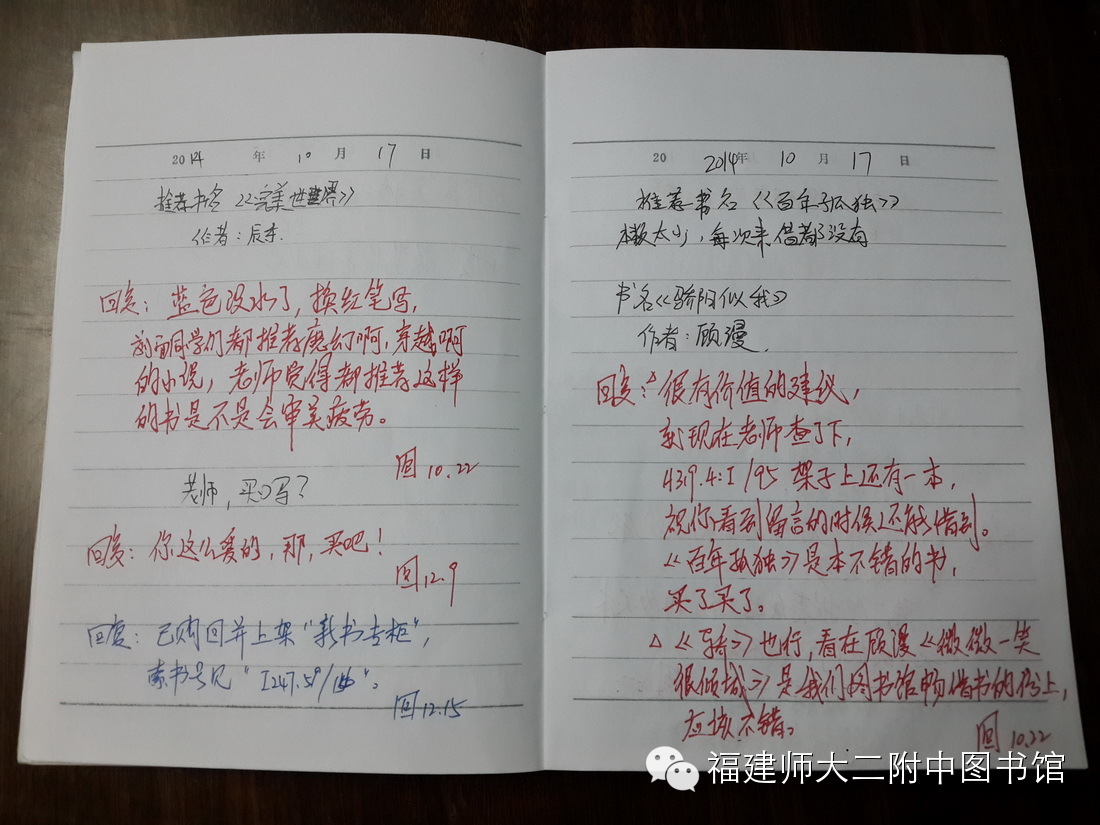 2014 年 10 月 17 日
推荐书名《完美世界》
作者：辰东.
回复：蓝色没水了，换红笔写，
同学们都推荐魔幻啊，穿越啊
的小说，老师觉得都推荐这样
的书是不是会审美疲劳。
回 10.22
老师，买吗？
回复：你这么爱的，那，买吧！
回 12.9
回复：已购回并上架“新书专柜”，
索书号见“I247.59/
回 12.15
20 2014年 10 月 17 日
推荐书名《百年孤独》
本数太少，每次来借都没有
书名《骄阳似我》
作者：顾漫.
回复：△很有价值的建议，
现在老师查了下，
439.4:I/95 架子上还有一本，
祝你看到留言的时候还能借到。
《百年孤独》是本不错的书，
买了买了。
△《骄》也行，看在顾漫《微微一笑
很倾城》是我们图书馆畅借书的份上，
应该不错。
回 10.22
福建师大二附中图书馆